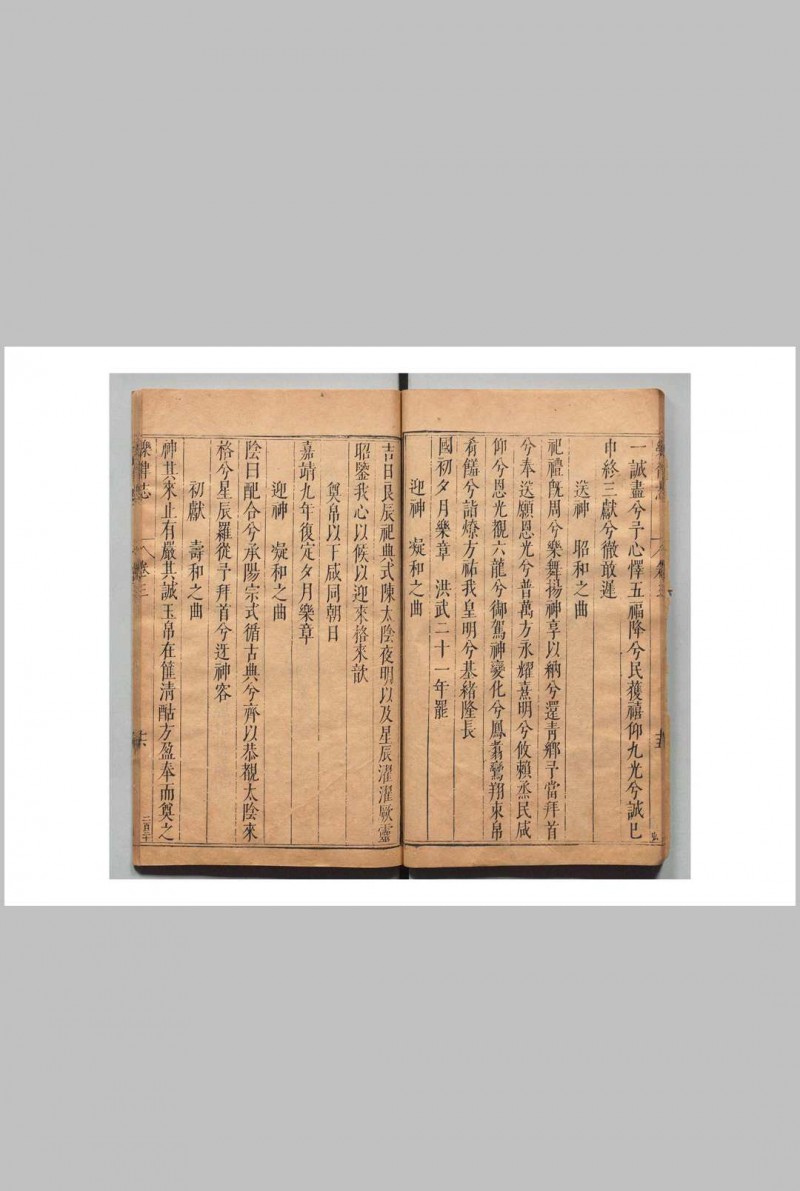 一誠盡兮予心懌五福降兮民獲禧仰九光兮誠已
申終三獻兮徹敢遲
送神　昭和之曲
祀禮旣周兮樂舞揚神享以納兮還青鄉予當拜首
兮奉送願恩光兮普萬方永耀熹明兮攸賴烝民咸
仰兮恩光覩六龍兮御駕神變化兮鳳翥鸞翔束帛
肴饈兮詣燎方祐我皇明兮基緒隆長
國初夕月樂章　洪武二十一年罷
迎神　凝和之曲
吉日良辰祀典式陳太陰夜明以及星辰濯濯厥靈
昭鑒我心以候以迎來格來歆
奠帛以下咸同朝日
嘉靖九年復定夕月樂章
迎神　凝和之曲
陰曰配合兮承陽宗式循古典兮齊以恭覩太陰來
格兮星辰羅從予拜首兮迓神容
初獻　壽和之曲
神其來止有嚴其誠玉帛在篚清酤方盈奉而奠之
樂律志　卷三